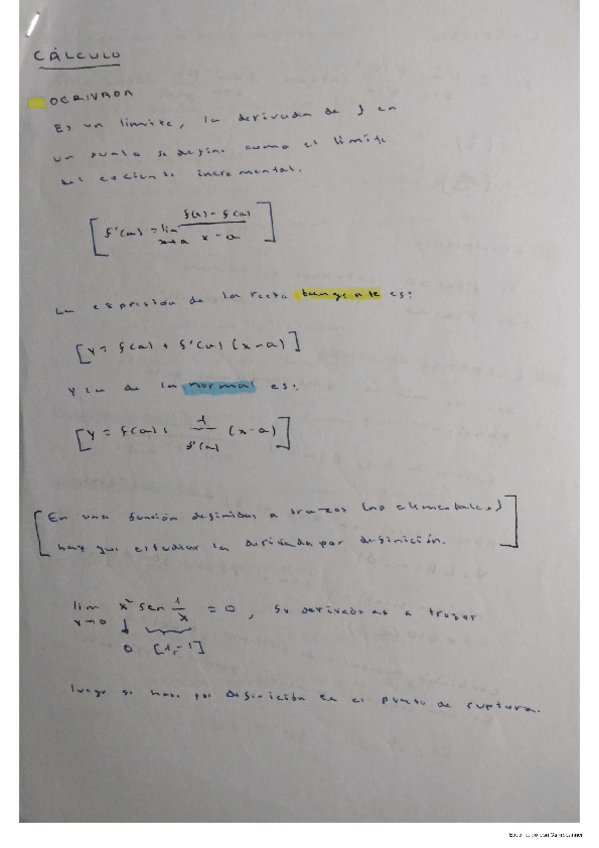 CÁLCULO
DERIVADA
Es un limite, la derivada de f en
un punto se define como el limite
del cociente incremental.
[f'(a) = lim x→a f(x) - f(a) / x - a]
La expresión de la recta tangente es:
[Y = f(a) + f'(a) (x-a)]
Y la de la normal es:
[Y = f(a) 1/f'(a) (x-a)]
[En una función definida a trozos (no elementales)
hay que estudiar la derivada por definición.]
lim x→0 x² sen 1/x = 0, su derivada es a trozos
0 [1,-1]
luego se hace por definición en el punto de ruptura.